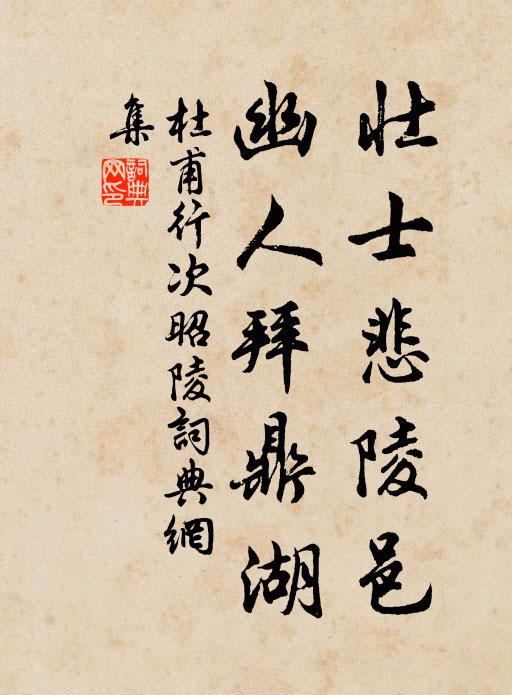 壯士悲陵邑
幽人拜鼎湖
杜甫行次昭陵詞典網
集
詞典
网印